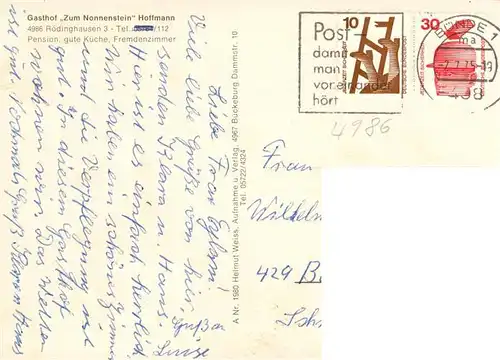 Gasthof „Zum Nonnenstein“ Hoffmann
4986 Rödinghausen 3 - Tel. /112
Pension, gute Küche, Fremdenzimmer
Liebe Frau
viele liebe Grüße von hier,
senden Klara u. Hans.
Hier ist es einfach herrlich
Wir haben ein schönes Zimmer
und die Verpflegung ist
gut. In diesem Gasthof
wohnen wir. Das Wetter
ist gut. Nochmals Gruß Klara Hans
Gruß an
Luise
A Nr. 1560 Helmut Weiss, Aufnahme u. Verlag, 4967 Bückeburg Dammstr. 10
Tel. 05722/4324
Post-
damit
man
voreinander
hört
10
30
BÜNDE 1
ma
-7.7.75-19
498
4986
Frau
Wilhelm
429 B